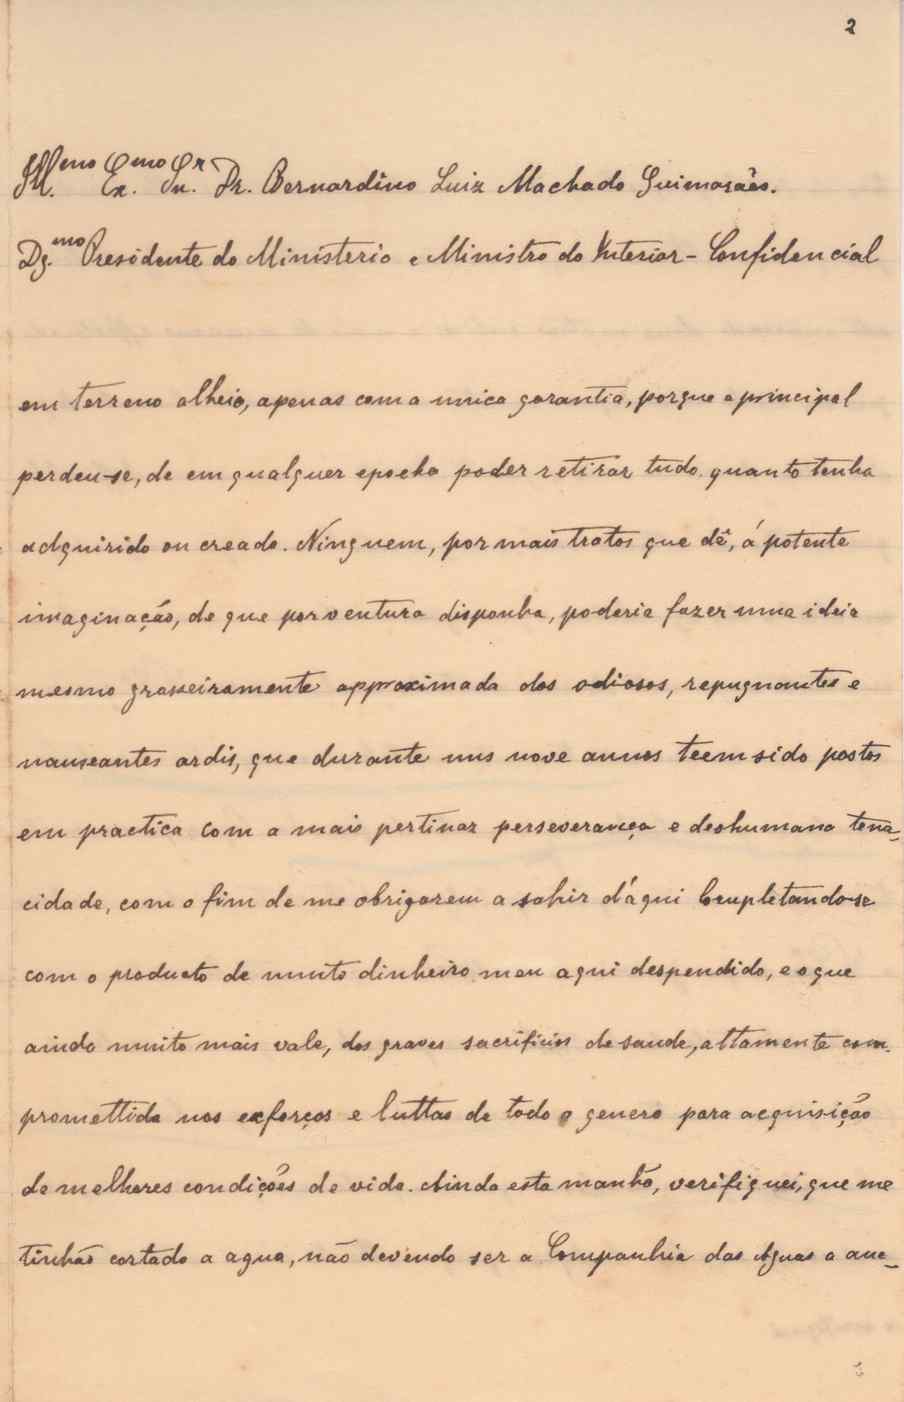 2
Ill.mo Ex.mo Sr. Dr. Bernardino Luiz Machado Guimarães.
Dg.mo Presidente do Ministerio e Ministro do Interior - Confidencial
em terreno alheio, apenas com a unica garantia, porque a principal
perdeu-se, de em qualquer epocha poder retirar tudo quanto tenha
adquirido ou creado. Ninguem, por mais tratos que dê, á potente
imaginação, de que porventura disponha, poderia fazer uma ideia
mesmo grosseiramente approximada dos odiosos, repugnantes e
nauseantes ardis, que durante uns nove annos teem sido postos
em practica com a mais pertinaz perseverança e deshumana tena-
cidade, com o fim de me obrigarem a sahir d'aqui locupletando-se
com o producto de muito dinheiro meu aqui despendido, e o que
ainda muito mais vale, dos graves sacrificios de saude, altamente com-
promettida nos exforços e luttas de todo o genero para acquisição
de melhores condições de vida. Ainda esta manhã, verifiquei, que me
tinhão cortado a agua, não devendo ser a Companhia das Aguas a auc-